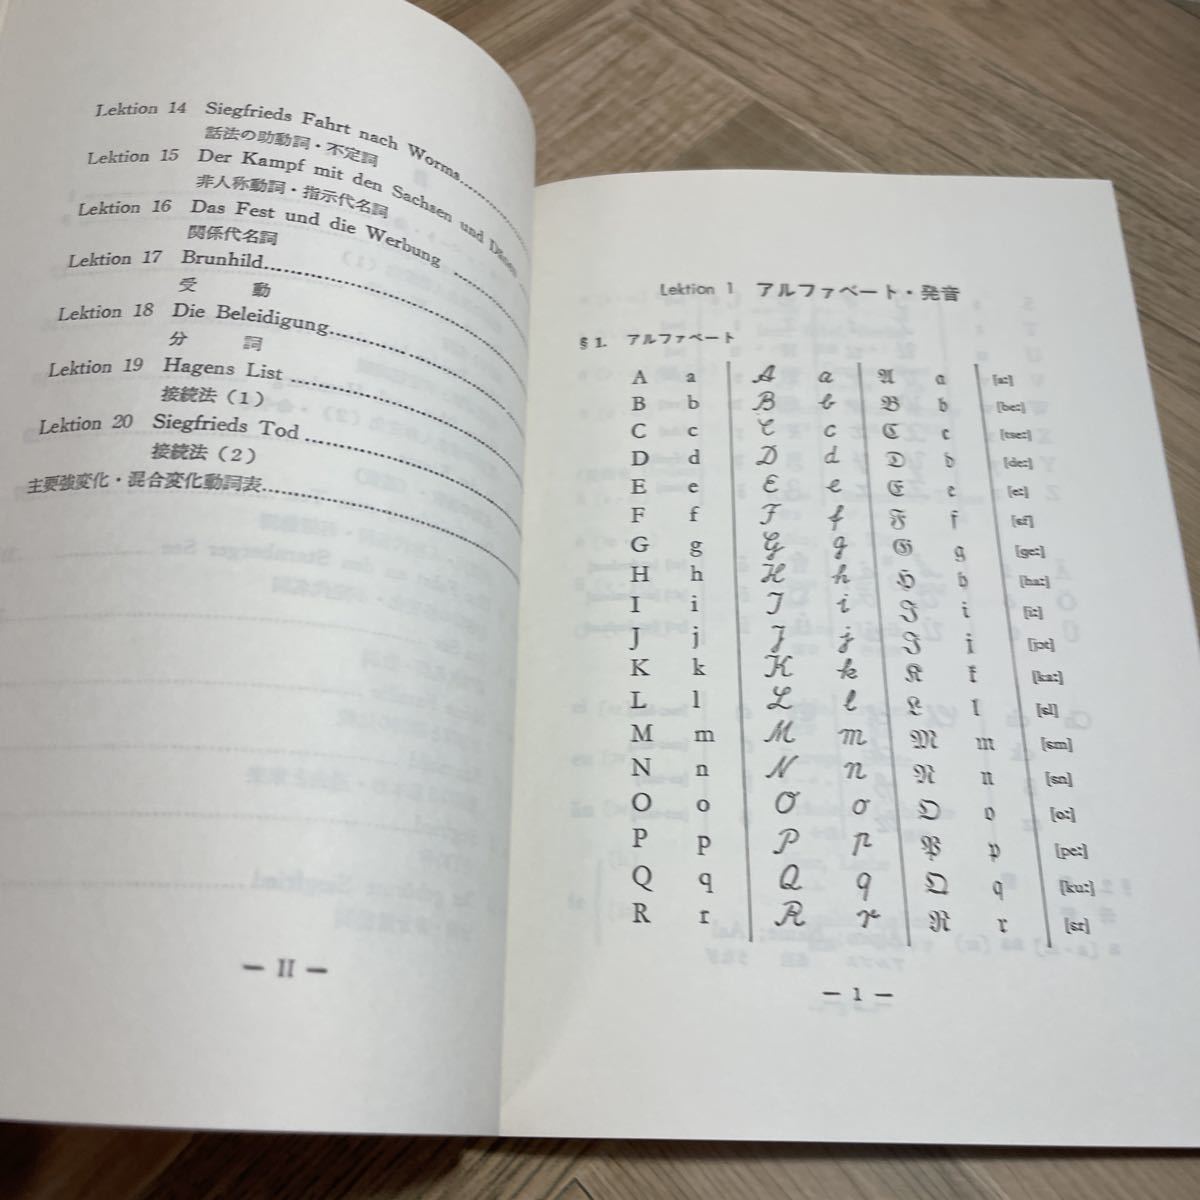 Lektion 14 Siegfrieds Fahrt nach Worms
話法の助動詞・不定詞
Lektion 15 Der Kampf mit den Sachsen und Dänen
非人称動詞・指示代名詞
Lektion 16 Das Fest und die Werbung
関係代名詞
Lektion 17 Brunhild
受 動
Lektion 18 Die Beleidigung
分 詞
Lektion 19 Hagens List
接続法（1）
Lektion 20 Siegfrieds Tod
接続法（2）
主要強変化・混合変化動詞表
— II —
Lektion 1 アルファベート・発音
§ 1. アルファベート
A a A a 𝔄 𝔞 [aː]
B b B b 𝔅 𝔟 [beː]
C c C c ℭ 𝔠 [tseː]
D d D d 𝔇 𝔡 [deː]
E e E e 𝔈 𝔢 [eː]
F f F f 𝔉 𝔣 [ɛf]
G g G g 𝔊 𝔤 [geː]
H h H h ℌ 𝔥 [haː]
I i I i ℑ 𝔦 [iː]
J j J j 𝔍 𝔧 [jɔt]
K k K k 𝔎 𝔨 [kaː]
L l L l 𝔏 𝔩 [ɛl]
M m M m 𝔐 𝔪 [ɛm]
N n N n 𝔑 𝔫 [ɛn]
O o O o 𝔒 𝔬 [oː]
P p P p 𝔓 𝔭 [peː]
Q q Q q 𝔔 𝔮 [kuː]
R r R r ℜ 𝔯 [ɛr]
— 1 —